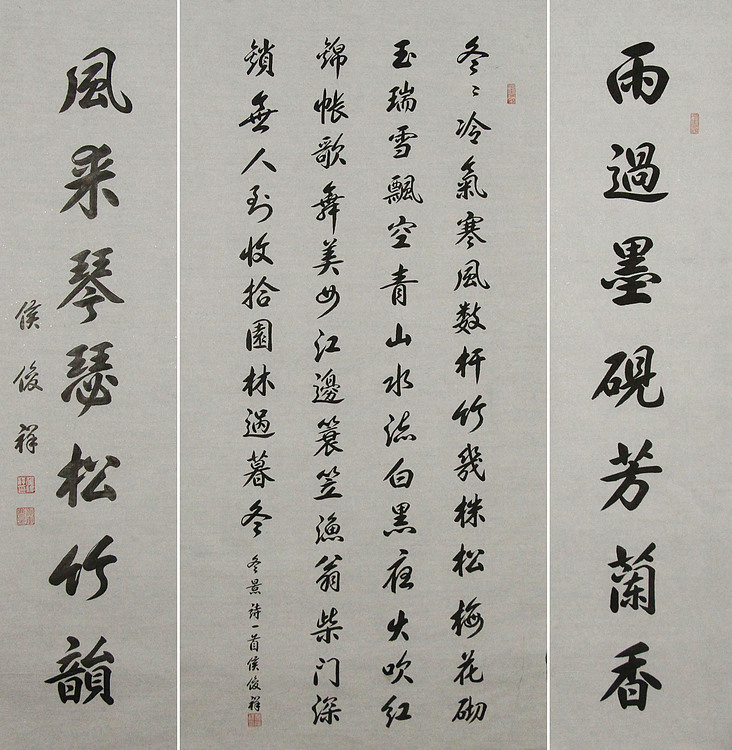 雨過墨硯芳蘭香
冬〻冷氣寒風数杆竹幾株松梅花砌
玉瑞雪飄空青山水流白黑夜火吹红
錦帳歌舞美女江邊蓑笠漁翁柴门深
鎖無人到收拾園林過暮冬 冬景诗一首侯俊祥
風来琴瑟松竹韻
侯俊祥